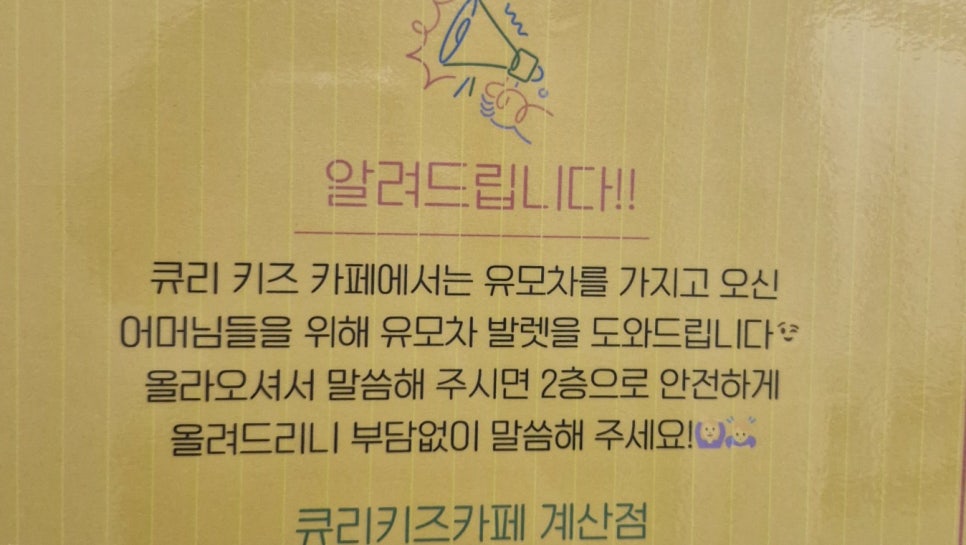 알려드립니다!!
큐리 키즈 카페에서는 유모차를 가지고 오신
어머님들을 위해 유모차 발렛을 도와드립니다
올라오셔서 말씀해 주시면 2층으로 안전하게
올려드리니 부담없이 말씀해 주세요!
큐리키즈카페 계산점